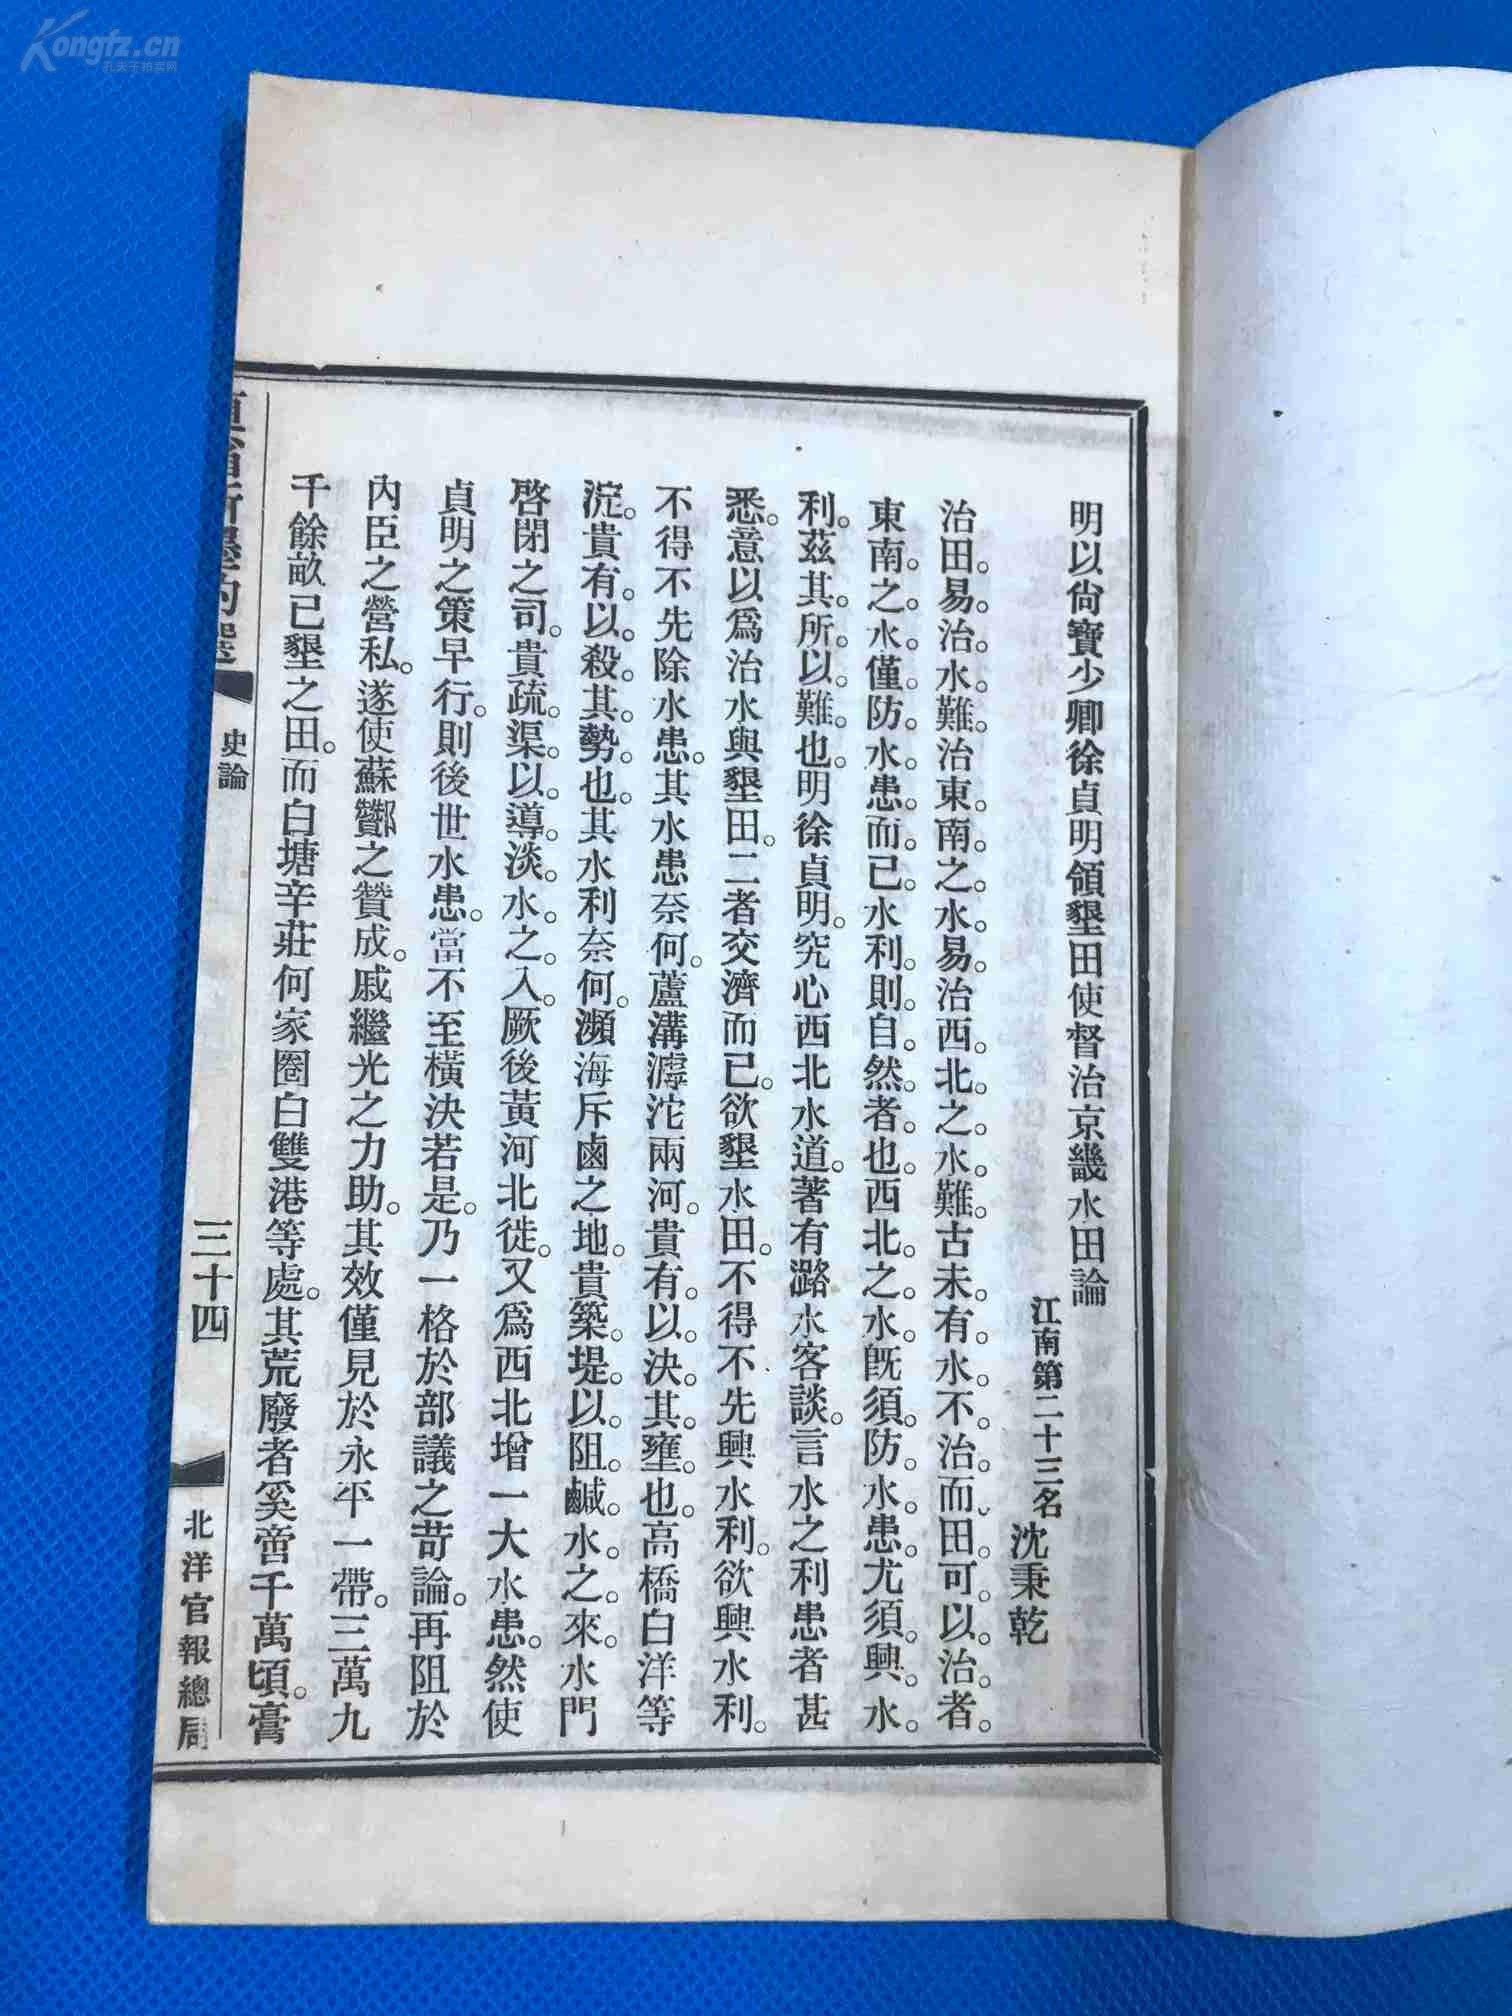 明以尙寶少卿徐貞明領墾田使督治京畿水田論
江南第二十三名 沈秉乾
治田。易。治。水。難。治東。南。之。水。易。治西。北。之。水。難。古未。有。水。不。治。而。田。可。以。治。者。
東南。之。水。僅。防。水。患。而。已。水。利。則。自。然。者。也。西北。之。水。旣須。防。水。患。尤須。興。水。
利。茲其。所。以。難。也。明徐貞明。究心西北水道。著有潞水客談。言水之利患者甚
悉。意以爲治水與墾田。二者交濟而已。欲墾水田。不得不先興水利。欲興水利。
不得不先除水患。其水患奈何。蘆溝滹沱兩河。貴有。以。決。其。壅。也。高橋白洋等
淀。貴有。以。殺。其。勢。也。其水利奈何。瀕海斥鹵之地。貴築。堤。以。阻。鹹。水。之。來。水門
啓閉之司。貴疏。渠。以。導。淡。水。之。入。厥後黃河北徙。又爲西北增一大水患。然使
貞明之策早行。則後世水患。當不至橫決若是。乃一格於部議之苛論。再阻於
內臣之營私。遂使蘇酇之贊成。戚繼光之力助。其效僅見於永平一帶。三萬九
千餘畝已墾之田。而白塘辛莊何家圈白雙港等處。其荒廢者奚啻千萬頃。膏
史論
三十四
北洋官報總局
Kongfz.cn
孔夫子拍卖网